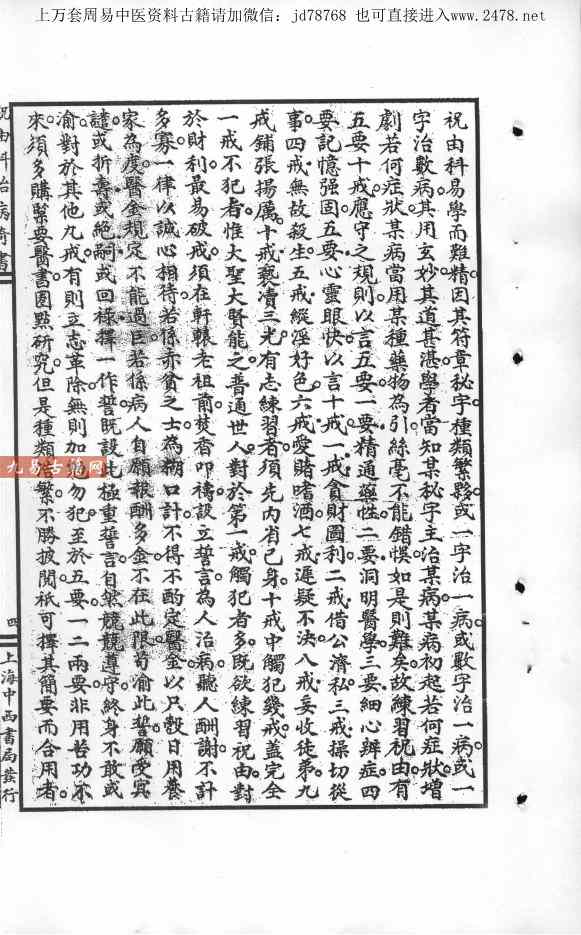 上万套周易中医资料古籍请加微信：jd78768 也可直接进入www.2478.net
祝由科易學而難精。因其符章秘字。種類繁夥。或一字治一病。或數字治一病。或一
字治數病。其用玄妙。其道甚湛。學者當知某秘字主治某病。某病初起若何症狀。增
劇若何症狀。某病當用某種藥物為引。絲毫不能錯悞。如是則難矣。故練習祝由有
五要十戒。應守之規則。以言五要。一要精通藥性。二要洞明醫學。三要細心辨症。四
要記憶强固。五要心靈眼快。以言十戒。一戒貪財圖利。二戒借公濟私。三戒操切從
事。四戒無故殺生。五戒縱淫好色。六戒愛賭嗜酒。七戒遲疑不決。八戒妄收徒弟。九
戒鋪張揚厲。十戒褻瀆三光。有志練習者。須先內省己身。十戒中觸犯幾戒。蓋完全
一戒不犯者。惟大聖大賢能之。普通世人。對於第一戒觸犯者多。既欲練習祝由。對
於財利最易破戒。須在軒轅老祖前焚香叩禱。設立誓言。為人治病。聽人酬謝。不計
多寡。一律以誠心相待。若係赤貧之士。為糊口計。不得不酌定醫金。以只彀日用養
家為度。醫金規定。不能過巨。若係病人自願報酬多金。不在此限。苟渝此誓。願受冥
譴。或折壽。或絕嗣。或回祿。擇一作誓。既設此極重誓言。自然競競遵守。終身不敢或
渝。對於其他九戒。有則立志革除。無則加勉勿犯。至於五要。一二兩要。非用苦功不
來。須多購緊要醫書。圈點研究。但是種類浩繁。不勝披閱。祇可擇其簡要而合用者。
祝由科治病奇書
四
上海中西書局發行
九易古籍网